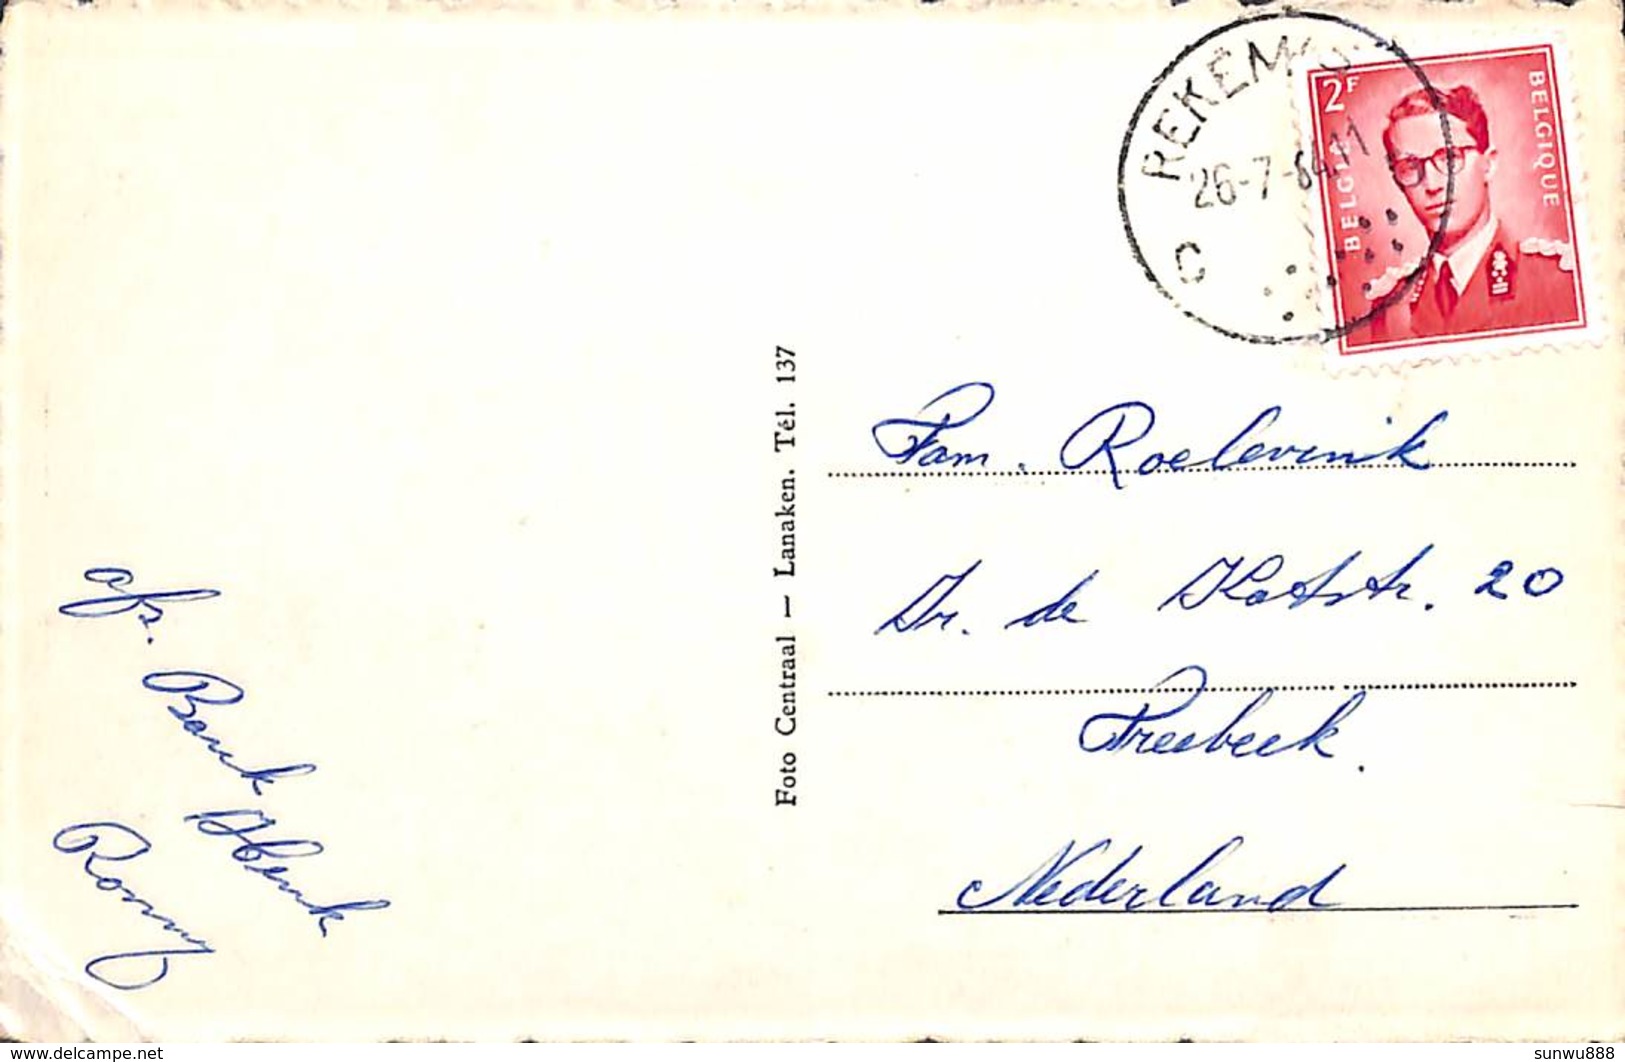 REKEM
26-7-64.11
C
2F
BELGIE
BELGIQUE
Foto Centraal — Lanaken. Tél. 137
Fam. Roelevink
Dr. de
20
Nederland
afz.
Henk
Ronny
www.delcampe.net
sunwu888